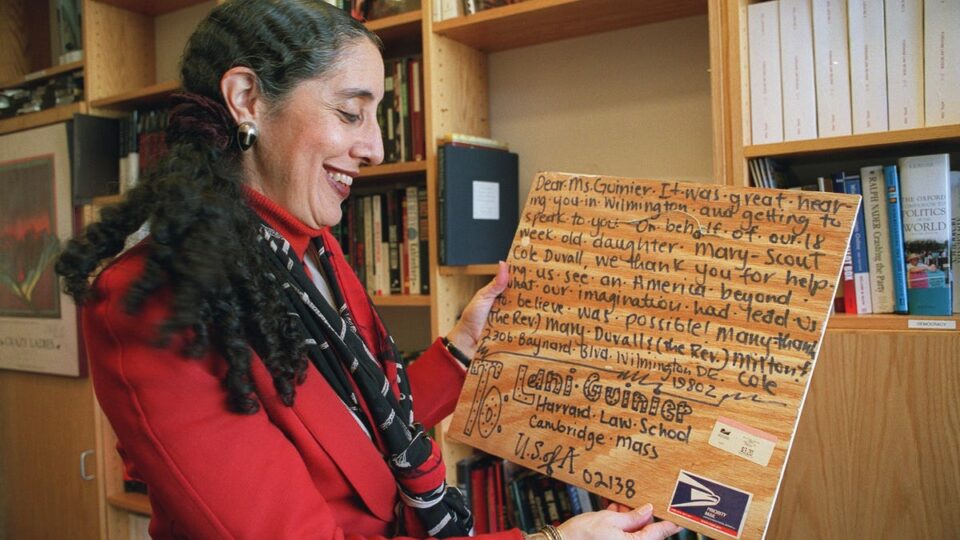 Dear Ms. Guinier. It was great hear-
ing you in Wilmington and getting to
speak to you. On behalf of our 18
week old daughter. Mary-Scout
Cole Duvall, we thank you for help-
ing us see an America beyond
what our imagination had lead us
to believe was possible! Many thanks
(the Rev) Mary Duvall & (the Rev.) Milton F.
Cole
2306 Baynard Blvd. Wilmington, DE.
19802
To. Lani Guinier
Harvard Law School
Cambridge. Mass
U.S. of A
02138
PRIORITY
MAIL
CRAZY LADIES
RALPH NADER Crashing the Party
THE OXFORD
COMPANION TO
POLITICS
OF THE
WORLD
DEMOCRACY